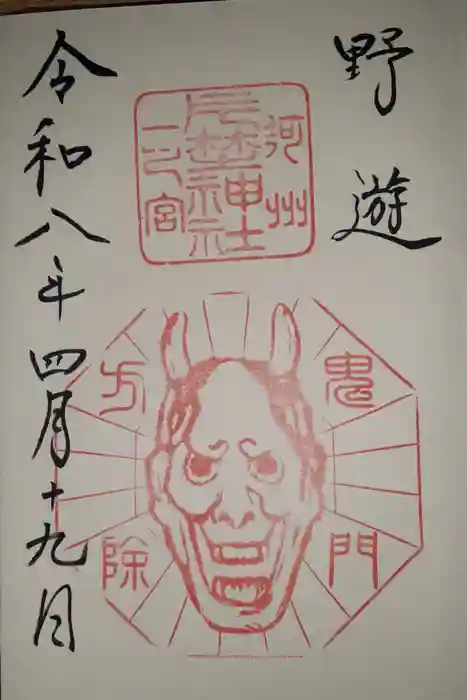 野遊
河州
片埜神社
一之宮
鬼門
方除
令和八年四月十九日